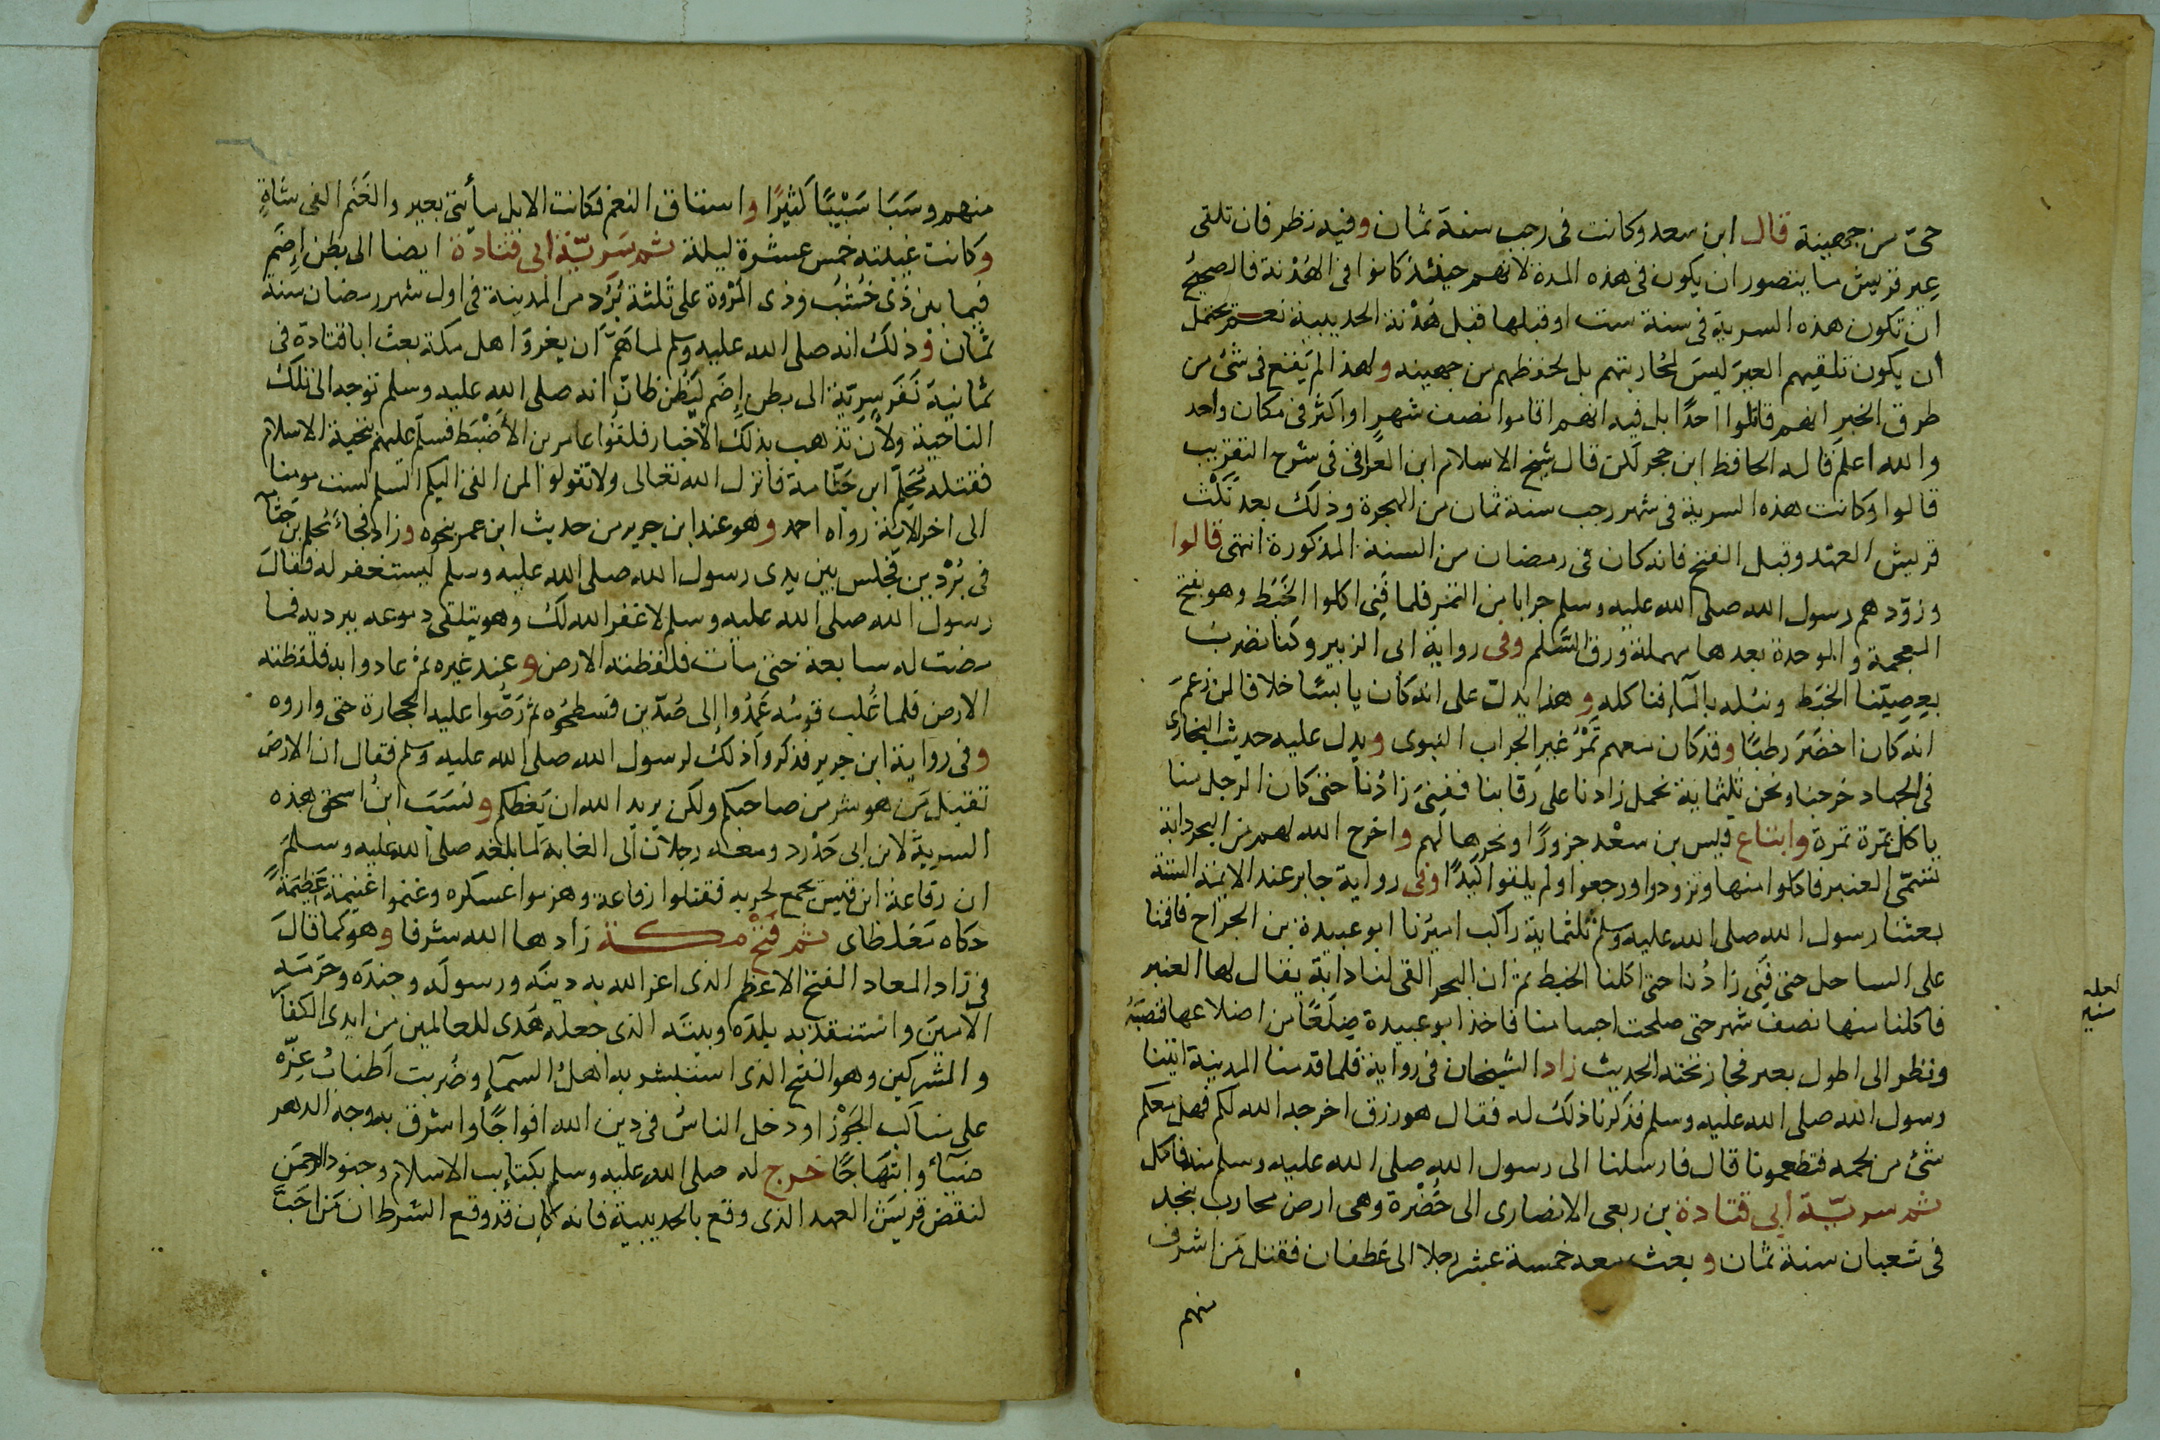 حىّ من جهينة قال ابن سعد وكانت فى رجب سنة ثمان وفيه نظر فان تلقى
عِير قريش ما يتصور ان يكون فى هذه المدة لانهم حينئذ كانوا فى الهُدْنة فالصحيح
ان تكون هذه السرية فى سنة ست او قبلها قبل هُدْنة الحديبية نعم يحتمل
أن يكون تلقيهم العير ليسَ لمحاربتهم بل لحفظهم من جهينه ولهذا لم يَقع فى شئ من
طرق الخبر انهم قاتلوا احدًا بل فيه انهم اقاموا نصف شهرٍ او اكثر فى مكان واحد
والله اعلم قاله الحافظ ابن حجر لكن قال شيخ الاسلام ابن العراقى فى شرح التقريب
قالوا وكانت هذه السرية فى شهر رجب سنة ثمان من الهجرة وذلك بعد نَكْث
قريش العهد وقبل الفتح فانه كان فى رمضان من السنة المذكورة انتهى قالوا
وزوّدهم رسول الله صلى الله عليه وسلم جرابا من التمر فلما فَنِى اكلوا الخَبَط وهو بفتح
المعجمة والموحدة بعدها مهملة ورق السَّلَم وفى رواية ابى الزبير وكنا نضربُ
بعِصِيّنا الخبَط ونبُله بالمآء فناكله وهذا يدل على انه كان يابسًا خلافا لمن زعمَ
انه كان اخضَرَ رطبًا وقد كان معهم تَمْرٌ غير الجراب النبوى ويدل عليه حديث البخارى
فى الجهاد خرجنا ونحن ثلثماية نحمل زادنا على رقابنا ففِنىَ زادُنا حتى كان الرجل منا
ياكل تمرة تمرة وابتاع قيس بن سعْد جزورًا ونحرها لهم واخرج الله لهم من البحر دابة
تسَمّى العنبر فاكلوا منها وتزودوا ورجعوا ولم يلقوا كيْدًا وفى رواية جابر عند الايمة الستة
بعثنا رسول الله صلى الله عليه وسلم ثلثماية راكب اميرُنا ابو عبيدة بن الجراح فاقمنا
على الساحل حتى فَنِى زادُنا حتى اكلنا الخبط ثم ان البحر القى لنا دابّة يقال لها العنبر
فاكلنا منها نصفَ شهر حتى صلحت اجسامنا فاخذ ابو عبيدة ضِلَعًا من اضلاعها فنصبَهُ
ونظر الى اطول بعير فجاز تحته الحديث زاد الشيخان فى رواية فلما قدمنا المدينة اتينا
رسول الله صلى الله عليه وسلم فذكرنا ذلك له فقال هو رزق اخرجه الله لكم فهل معكم
شئ من لحمه فتطعمونا قال فارسلنا الى رسول الله صلى الله عليه وسلم منه فاكل
ثم سريّة أبى قتادة بن ربعى الانصارى الى خُضْرة وهى ارض محارب بنجد
فى شعبان سنة ثمان وبعث معه خمسة عشر رجلا الى غطفان فقتل مَن اشرف
منهم
لعله
منير
منهم وسَبَا سَبْيًا كثيرًا واستاق النعم فكانت الابل مأيتى بعير والغَنَم الفى شاةٍ
وكانت غيبته خمس عشرة ليلة ثم سَريّة ابى قتادة ايضا الى بطن إضَم
فيما بين ذى خُشُب وذى المَرْوة على ثلثة بُرُد من المدينة فى اول شهر رمضان سنة
ثمان وذلك انه صلى الله عليه وسلم لما هَمّ أن يغزوَ اهل مكة بعث ابا قتادة فى
ثمانية نَفَر سرِيّة الى بطن إضَم ليَظُن ظانّ انه صلى الله عليه وسلم توجه الى تلك
الناحية ولأن تذهب بذلك الأخبار فلقُوا عامر بن الأضْبَط فسلّم عليهم بتحية الاسلام
فقتله مُحَلِّم ابن جَثّامة فانزل الله تعالى ولا تقولوا لمن القى اليكم السّلم لست مومنا
الى اخر الاية رواه احمد وهو عند ابن جرير من حديث ابن عمر بنحوه وزاد فجاءَ مُحلم بن جثّا
فى بُرْدين فجلس بين يدى رسول الله صلى الله عليه وسلم ليستغفر له فقالَ
رسول الله صلى الله عليه وسلم لا غفر الله لك وهو يتلقى دموعه ببرديه فما
مضت له سابعة حتى مات فلفظته الارض وعند غيره ثم عادوا به فلفظته
الارض فلما غُلب قومُه عَمَدُوا إلى صُدّين فسطحُوه ثم رَضُّوا عليه الحجارة حتى واروه
وفى رواية ابن جرير فذكروا ذلك لرسول الله صلى الله عليه وسلم فقال ان الارض
تقبل مَن هو شر من صاحبكم ولكن يريد الله ان يَعظكم ونسَبَ ابنُ اسحق هذه
السرية لابن ابى حَدْرد ومعه رجلان الى الغابة لما بلغه صلى الله عليه وسلمَ
ان رفاعة ابن قيس يجمع لحربه فقتلوا رفاعة وهزموا عسكره وغنموا غنيمة عَظيمَةً
حكاه مَغلطاى ثم فَتْح مكة زادها الله شرفا وهو كما قالَ
فى زاد المعاد الفتح الاعظم الذى اعز الله به دينَه ورسولَه وجندَه وحَرَمَه
الامينَ واستنقذ به بلدَه وبيتَه الذى جعله هُدًى للعالمين من ايدى الكفار
والمشركين وهو الفتح الذى استبشر به اهلُ السمآء وضُربت اَطنابُ عِزّه
على مناكب الجَوْزا ودخل الناسُ فى دين الله افواجًا واشرق به وجه الدهر
ضيَآءً وابتهاجًا خرج له صلى الله عليه وسلم بكتايب الاسلام وجنود الرحمن
لنقض قريش العهد الذى وقع بالحديبية فانه كان قد وقع الشرط ان مَن احَبَّ